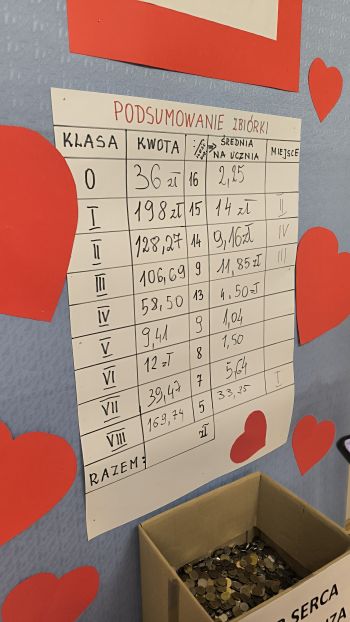 PODSUMOWANIE ZBIÓRKI
KLASA KWOTA ŚREDNIA NA UCZNIA MIEJSCE
0 36 zł 16 2,25
I 198 zł 15 14 zł II
II 128,27 14 9,16 zł IV
III 106,69 9 11,85 zł III
IV 58,50 13 4,50 zł
V 9,41 9 1,04
VI 12 zł 8 1,50
VII 39,47 7 5,64
VIII 169,74 5 33,25 I
RAZEM: zł
SERCA